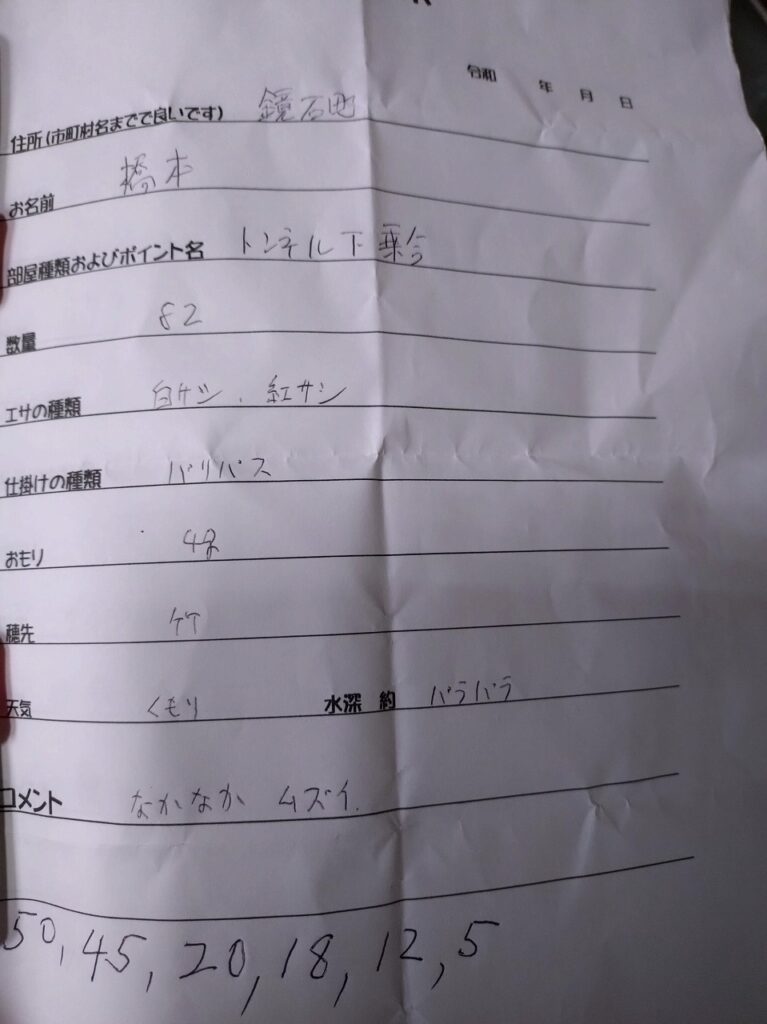 令和 年 月 日
住所(市町村名までで良いです) 鏡石町
お名前 橋本
部屋種類およびポイント名 トンネル下乗合
数量 82
エサの種類 白サシ、紅サシ
仕掛けの種類 バリバス
おもり 4g
穂先 竹
天気 くもり 水深 約 バラバラ
コメント なかなか ムズイ.
50, 45, 20, 18, 12, 5